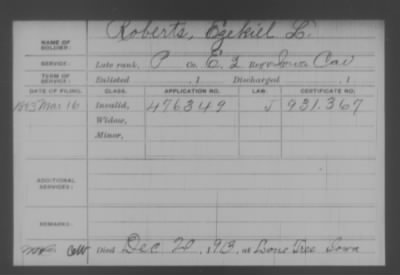 NAME OF SOLDIER: Roberts, Ezekiel L.
SERVICE: Late rank, P Co. E. 2 Reg't Iowa Cav
TERM OF SERVICE: Enlisted , 1 Discharged , 1
DATE OF FILING. CLASS. APPLICATION NO. LAW. CERTIFICATE NO.
Mar 16 Invalid, 476349 J 931.367
Widow,
Minor,
ADDITIONAL SERVICES:
REMARKS:
Died Dec. 20, 1913, at Lone Tree Iowa